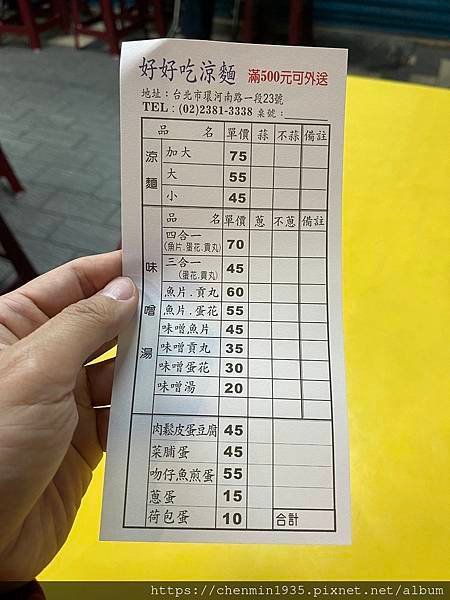 好好吃涼麵 滿500元可外送
地址：台北市環河南路一段23號
TEL：(02)2381-3338 桌號：
品名 單價 蒜 不蒜 備註
涼麵
加大 75
大 55
小 45
品名 單價 蔥 不蔥 備註
味噌湯
四合一 70
(魚片.蛋花.貢丸)
三合一 45
(蛋花.貢丸)
魚片.貢丸 60
魚片.蛋花 55
味噌魚片 45
味噌貢丸 35
味噌蛋花 30
味噌湯 20
肉鬆皮蛋豆腐 45
菜脯蛋 45
吻仔魚煎蛋 55
蔥蛋 15
荷包蛋 10 合計
https://chenmin1935.pixnet.net/album